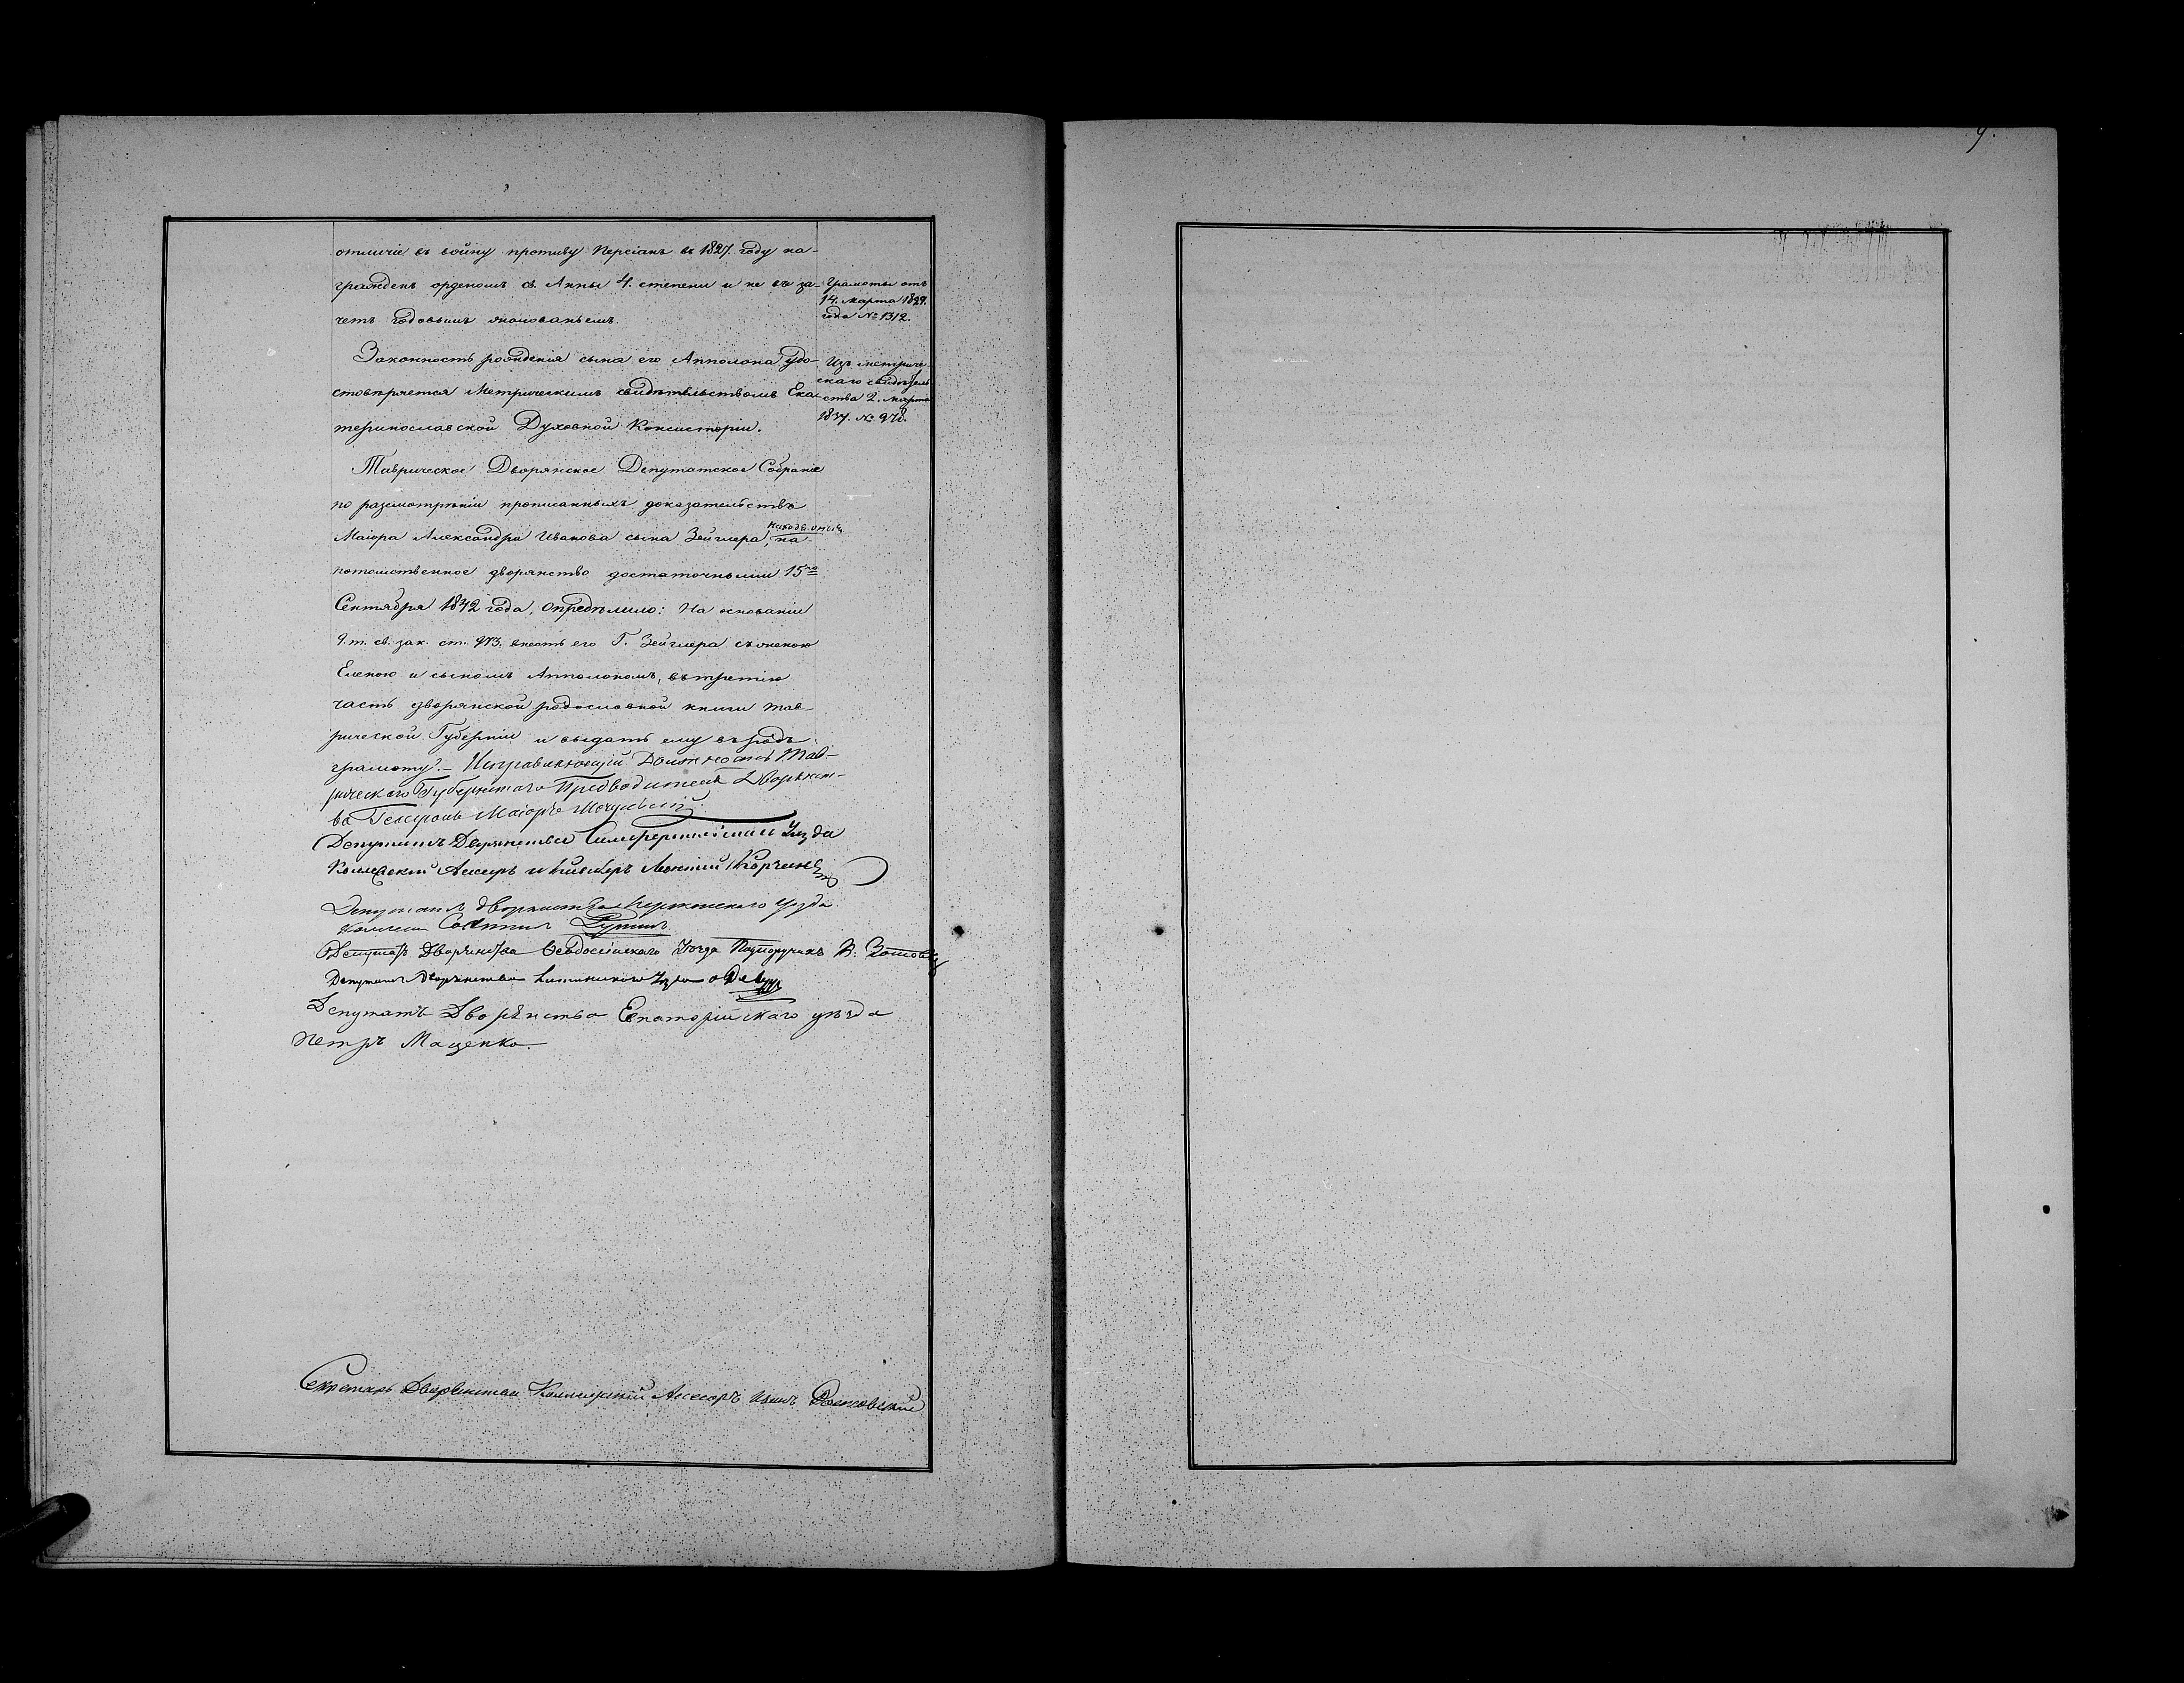 отличіе въ войну противу Персіанъ въ 1827. году на-
гражденъ орденомъ св. Анны 4. степени и не въ за-
четъ годовымъ жалованьемъ.
Грамоты отъ
14. Марта 1829.
года № 1312.
Законность рожденія сына его Апполона удо-
стовѣряется Метрическимъ свидѣтельствомъ Ека-
теринославской Духовной Консисторіи.
Изъ метриче-
скаго свидѣтель
ства 2. Марта
1834. № 978.
Таврическое Дворянское Депутатское Собраніе
по разсмотрѣніи прописанныхъ доказательствъ
находя оныя
Маіора Александра Иванова сына Зейглера, на-
потомственное дворянство достаточными 15го
Сентября 1842 года, опредѣлило: На основаніи
9. т. св. зак. ст. 973. внесть его Г. Зейглера съ женою
Еленою и сыномъ Апполономъ, въ третію
часть дворянской родословной книги Тав-
рической Губерніи и выдать ему въ родъ
грамоту.- Исправляющій Должность Тав-
рическаго Губернскаго Предводителя Дворянст-
ва Генералъ Маіоръ
Депутатъ Дворянства Симферопольскаго Уѣзда
Коллежскій Ассесоръ и Кавалеръ
Депутатъ Дворянства Перекопскаго Уѣзда
Депутатъ Дворянства Ѳеодосійскаго Уѣзда Подпоручикъ В.
Депутатъ Дворянства Уѣзда
Депутатъ Дворянства Евпаторійскаго уѣзда
Петръ Маценко.
Секретарь Дворянства Коллежскій Ассесоръ
9.